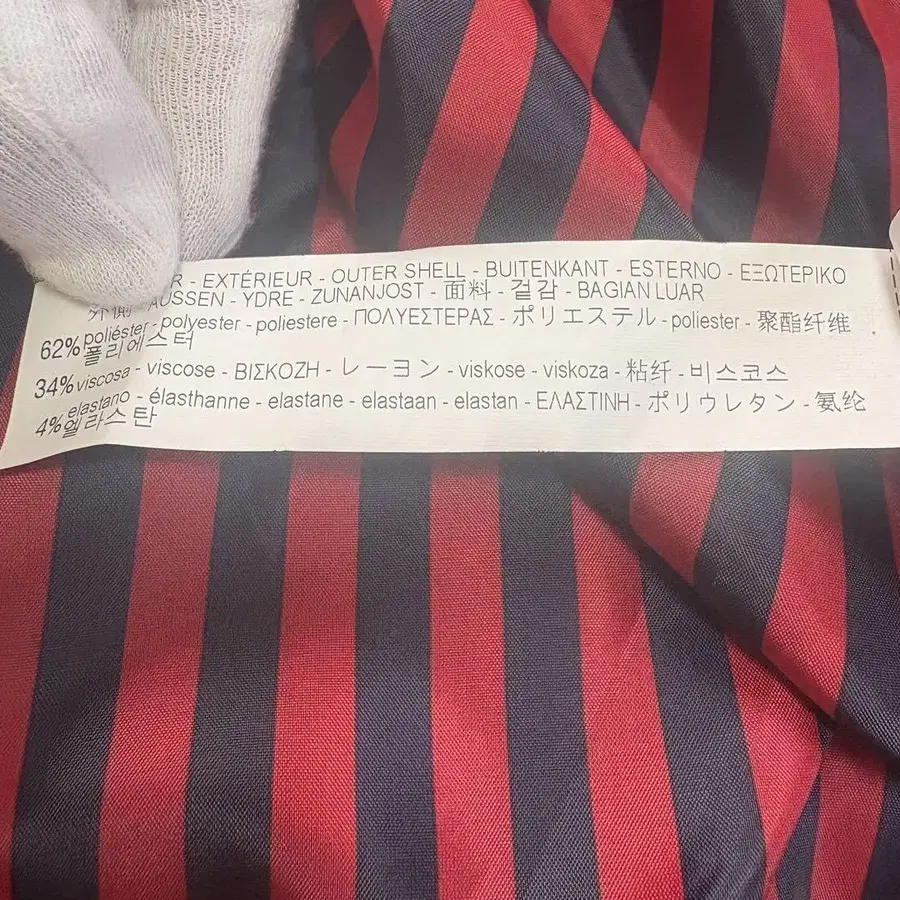 R - EXTÉRIEUR - OUTER SHELL - BUITENKANT - ESTERNO - ΕΞΩΤΕΡΙΚΟ
外側 AUSSEN - YDRE - ZUNANJOST - 面料 - 겉감 - BAGIAN LUAR
62% poliéster - polyester - poliestere - ΠΟΛΥΕΣΤΕΡΑΣ - ポリエステル - poliester - 聚酯纤维
폴리에스터
34% viscosa - viscose - ΒΙΣΚΟΖΗ - レーヨン - viskose - viskoza - 粘纤 - 비스코스
4% elastano - élasthanne - elastane - elastaan - elastan - ΕΛΑΣΤΙΝΗ - ポリウレタン - 氨纶
엘라스탄